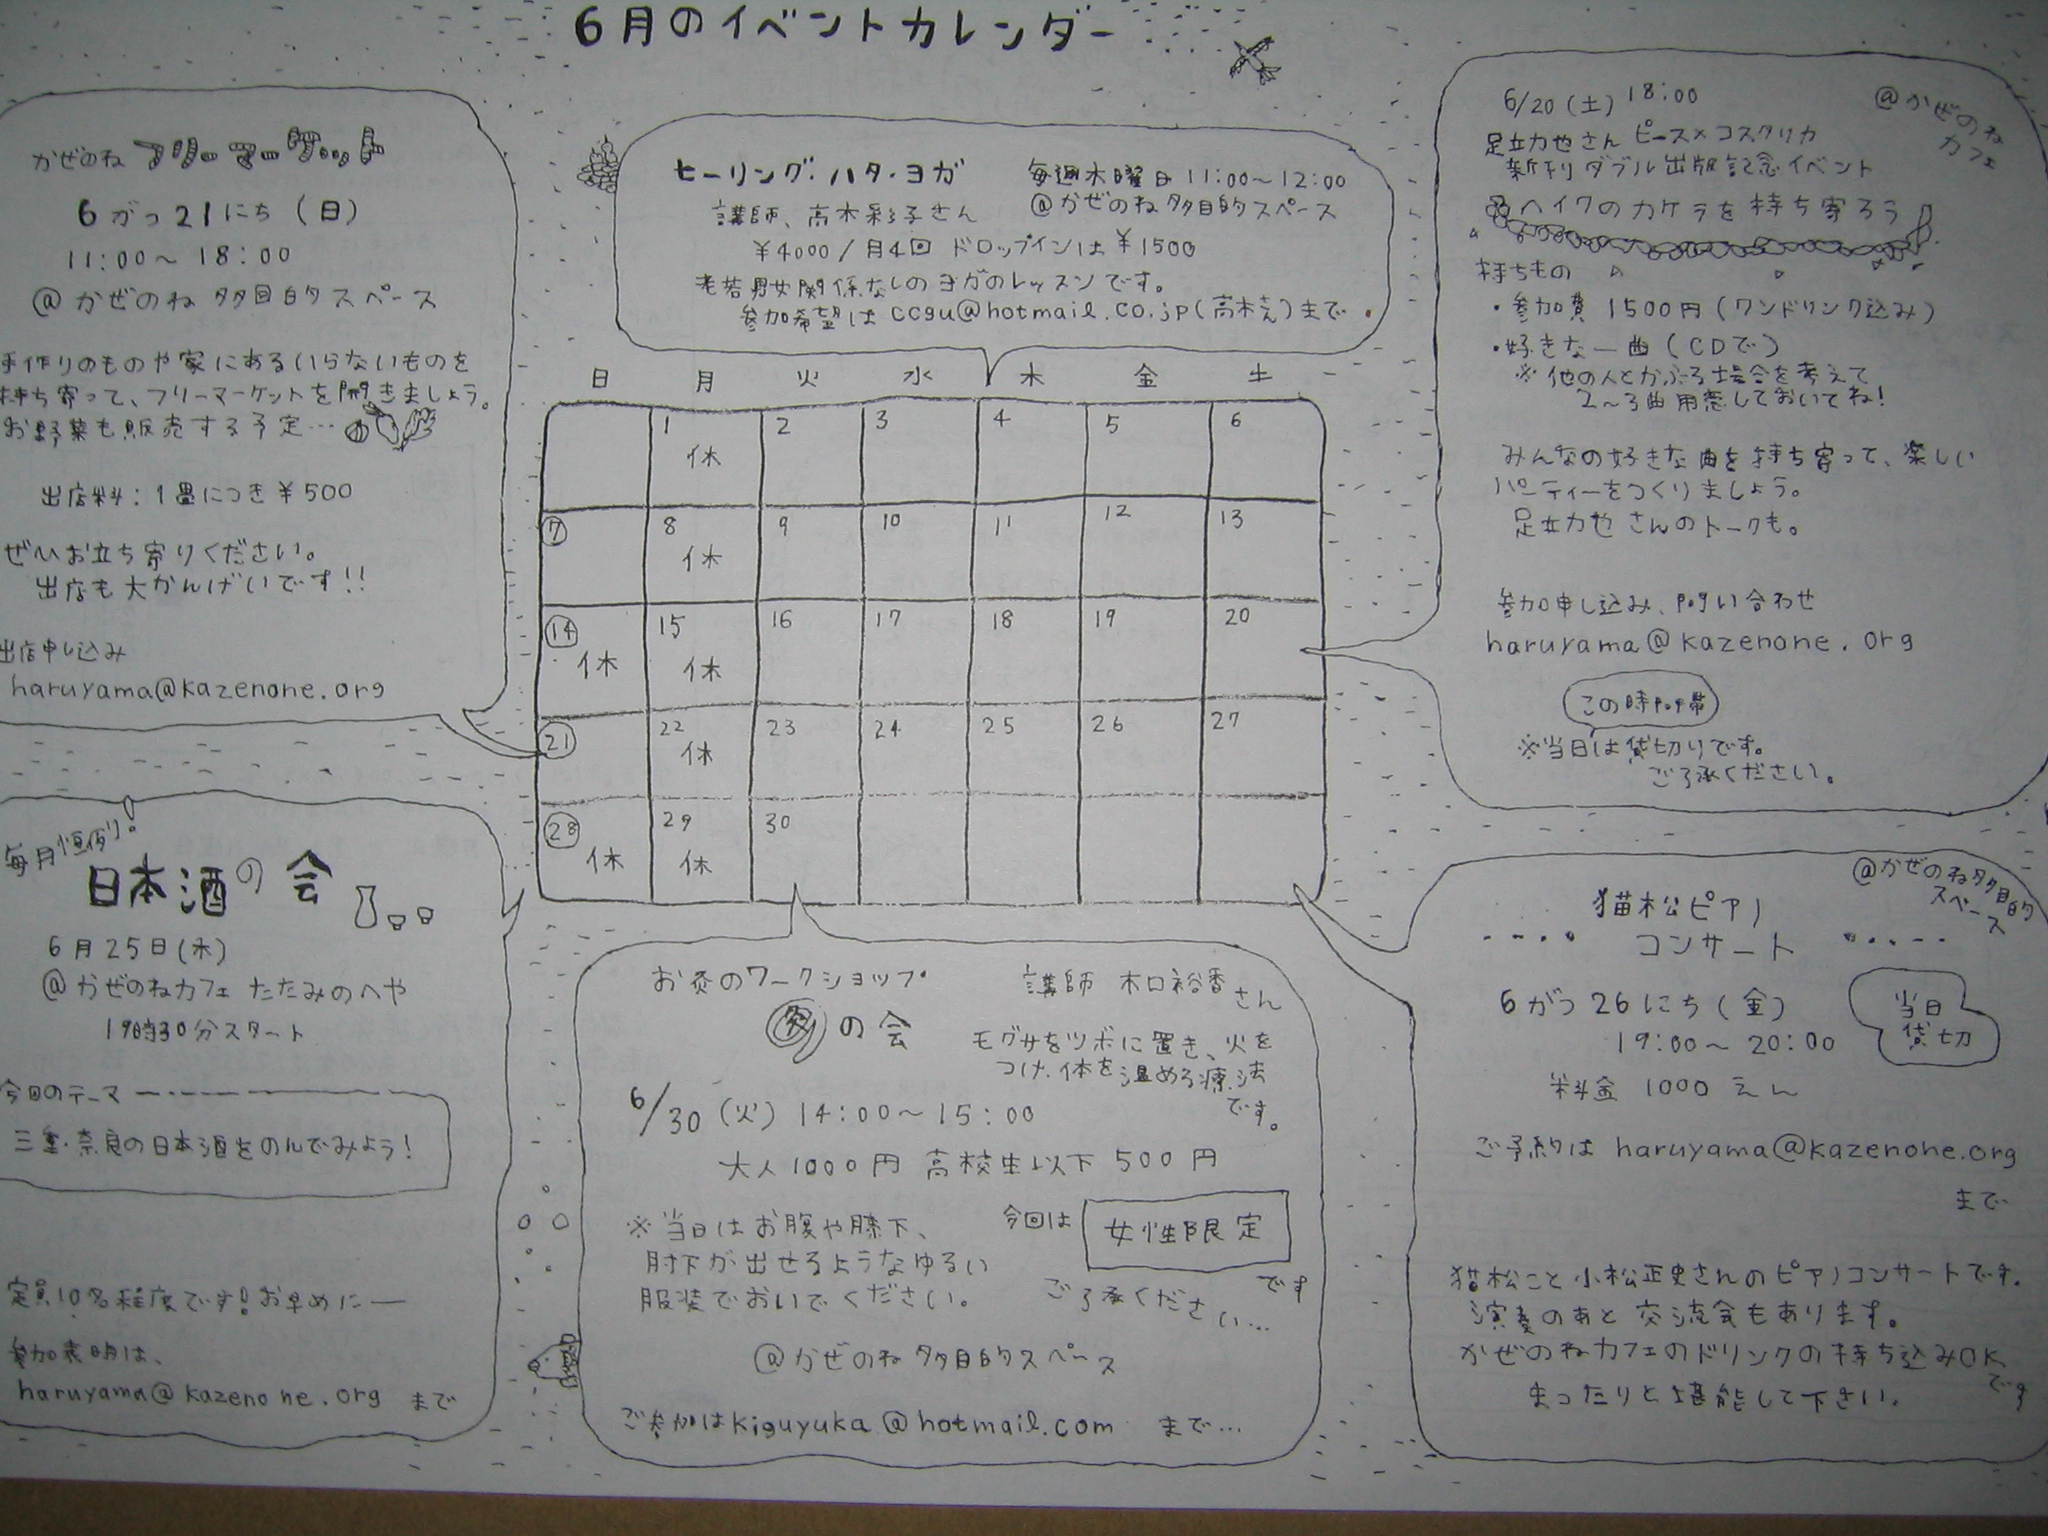 6月のイベントカレンダー
かぜのね フリーマーケット
6がつ21にち(日)
11:00〜18:00
@かぜのね 多目的スペース
手作りのものや家にあるいらないものを
持ち寄って、フリーマーケットを開きましょう。
お野菜も販売する予定…
出店料:1畳につき¥500
ぜひお立ち寄りください。
出店も大かんげいです!!
出店申し込み
haruyama@kazenone.org
ヒーリング・ハタ・ヨガ
毎週木曜日11:00〜12:00
講師、高木彩子さん
@かぜのね多目的スペース
¥4000/月4回 ドロップインは¥1500
老若男女関係なしのヨガのレッスンです。
参加希望は ccgu@hotmail.co.jp(高木さん)まで
6/20(土) 18:00
@かぜのね
カフェ
足立力也さん ピース×コスタリカ
新刊ダブル出版記念イベント
ヘイワのカケラを持ち寄ろう
持ちもの
・参加費 1500円(ワンドリンク込み)
・好きな一曲(CDで)
※他の人とかぶる場合を考えて
2〜3曲用意しておいてね!
みんなの好きな曲を持ち寄って、楽しい
パーティーをつくりましょう。
足立力也さんのトークも。
参加申し込み、問い合わせ
haruyama@kazenone.org
この時間帯
※当日は貸切りです。
ご了承ください。
日 月 火 水 木 金 土
1 2 3 4 5 6
休
7 8 9 10 11 12 13
休
14 15 16 17 18 19 20
休 休
21 22 23 24 25 26 27
休
28 29 30
休 休
毎月恒例!
日本酒の会
6月25日(木)
@かぜのねカフェ たたみのへや
19時30分スタート
今回のテーマ
三重・奈良の日本酒をのんでみよう!
定員10名程度です!お早めにー
参加表明は、
haruyama@kazenone.org まで
お灸のワークショップ
講師 木口裕香さん
の会
モグサをツボに置き、火を
つけ、体を温める療法
です。
6/30(火) 14:00〜15:00
大人1000円 高校生以下500円
※当日はお腹や膝下、
肘下が出せるようなゆるい
服装でおいでください。
今回は 女性限定
です
ご了承ください…
@かぜのね多目的スペース
ご参加はkiguyuka@hotmail.com まで…
@かぜのね多目的
スペース
猫松ピアノ
コンサート
6がつ26にち(金)
19:00〜20:00
当日
貸切
料金 1000えん
ご予約は haruyama@kazenone.org
まで
猫松こと小松正史さんのピアノコンサートです。
演奏のあと交流会もあります。
かぜのねカフェのドリンクの持ち込みOK
です
まったりと堪能して下さい。